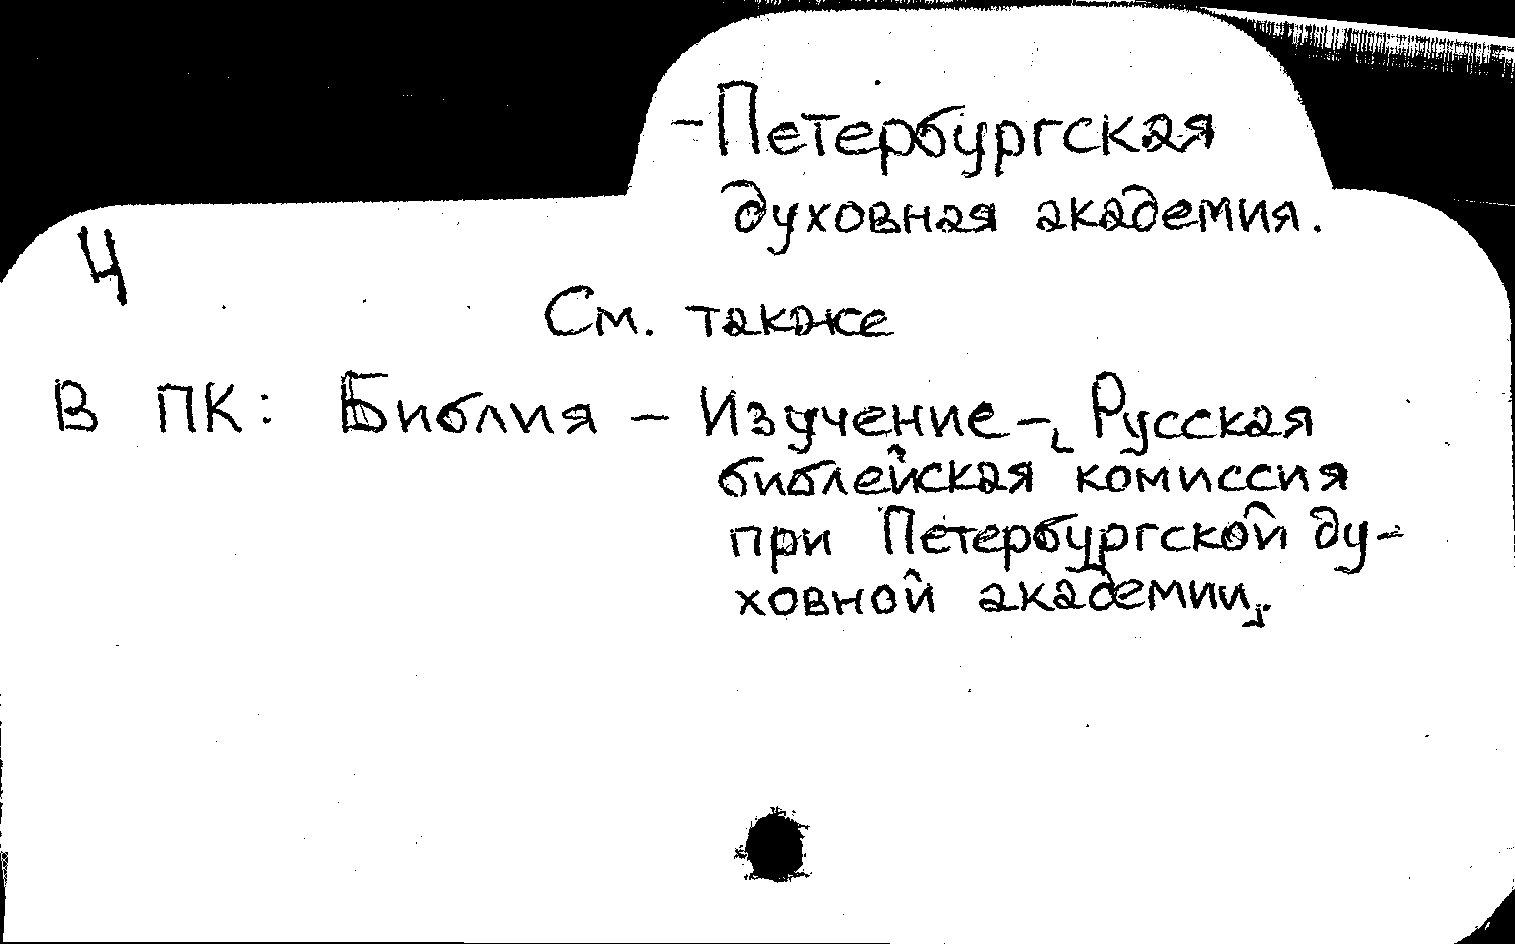 – Петербургская
духовная академия.
4
См. также
В ПК: Библия – Изучение – Русская
библейская комиссия
при Петербургской ду-
ховной академии.